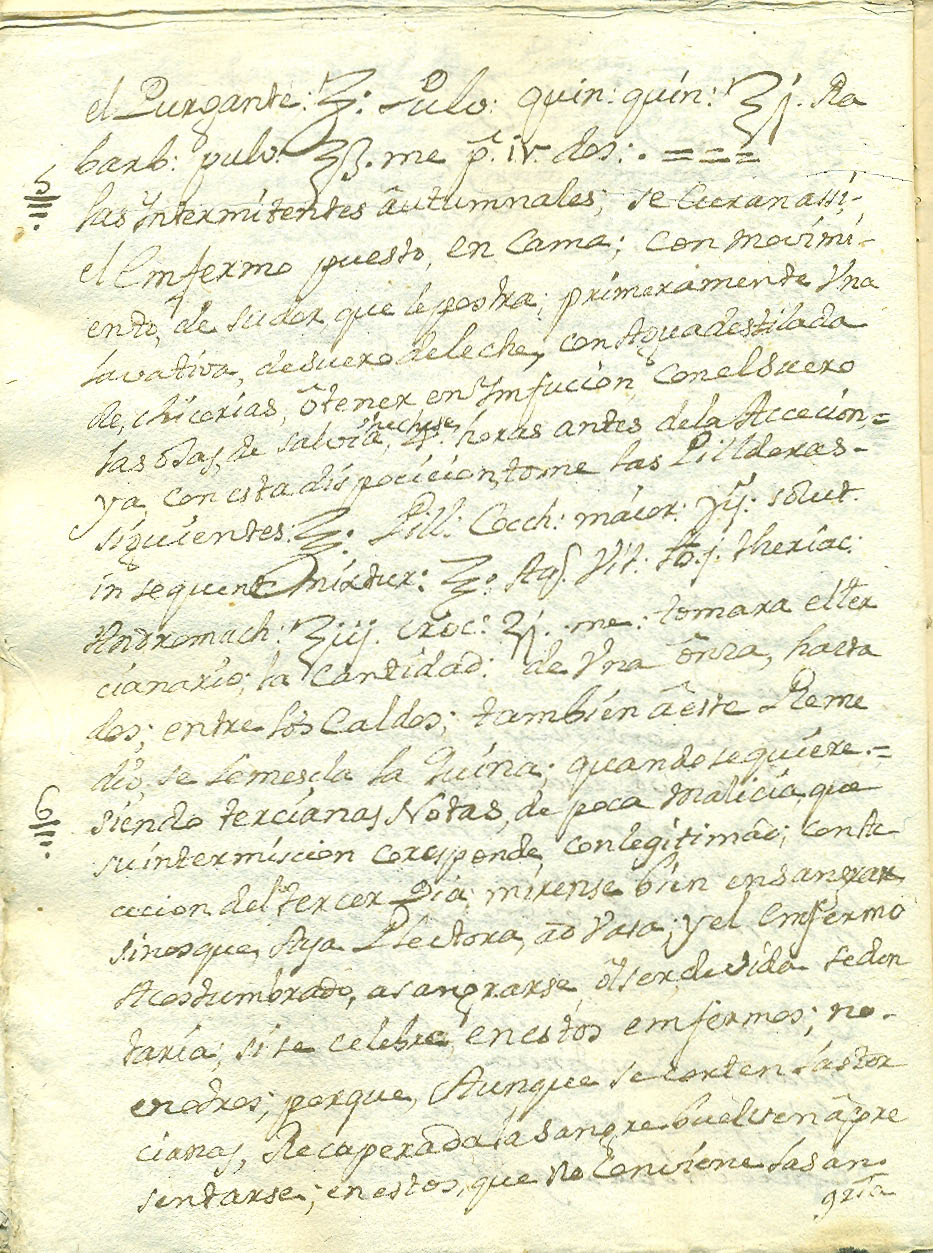 el Purgante: ℞: Pulv: quin: quin: ʒj. Ra
barb: pulv: ʒß. me p.º iv. dos: . = = =
5
las Yntermitentes âutumnales; se Curan assi;-
el Emfermo puesto, en Cama; con movimi-
ento, de sudor que le postra; primeramente Vna
lavativa, de suero de leche, con Agua destilada
de, chicorias, ô tener en Ymfucion con el Suero
las ojas, de salvia, hechese 4.º horas antes de la Accecion,=
ya con esta dispocicion, tome las Pillderas-
siguientes: ℞: Pill: Cocch: maior: solut.
in sequent mixtur: ℞: Aq. Vit: lb.j. theriac:
Andromach: ʒiij. croc: ℈j. me: tomara el ter
cianario; la Cantidad: de Vna ônza, hasta
dos; entre los Caldos; tambien â este Reme
dio, se le mescla la Quina; quando se quiere.=
6
siendo tercianas Notas, de poca malicia, que
su intermiscion coresponde, con legitimâd; con Ac-
cecion del tercer Dia; mirense bien en sangrar
sinosque, Aya Plectora, âd Vasa; y el Emfermo
Acostumbrado, a sangrarse, ô el ser, de vida seden
taria; si se celebre, en estos emfermos; no-
en otros; porque, Aunque se corten las ter
cianas, Recaperada la Sangre buelven â pre
sentarse; en estos, que no Conviene la san-
gria